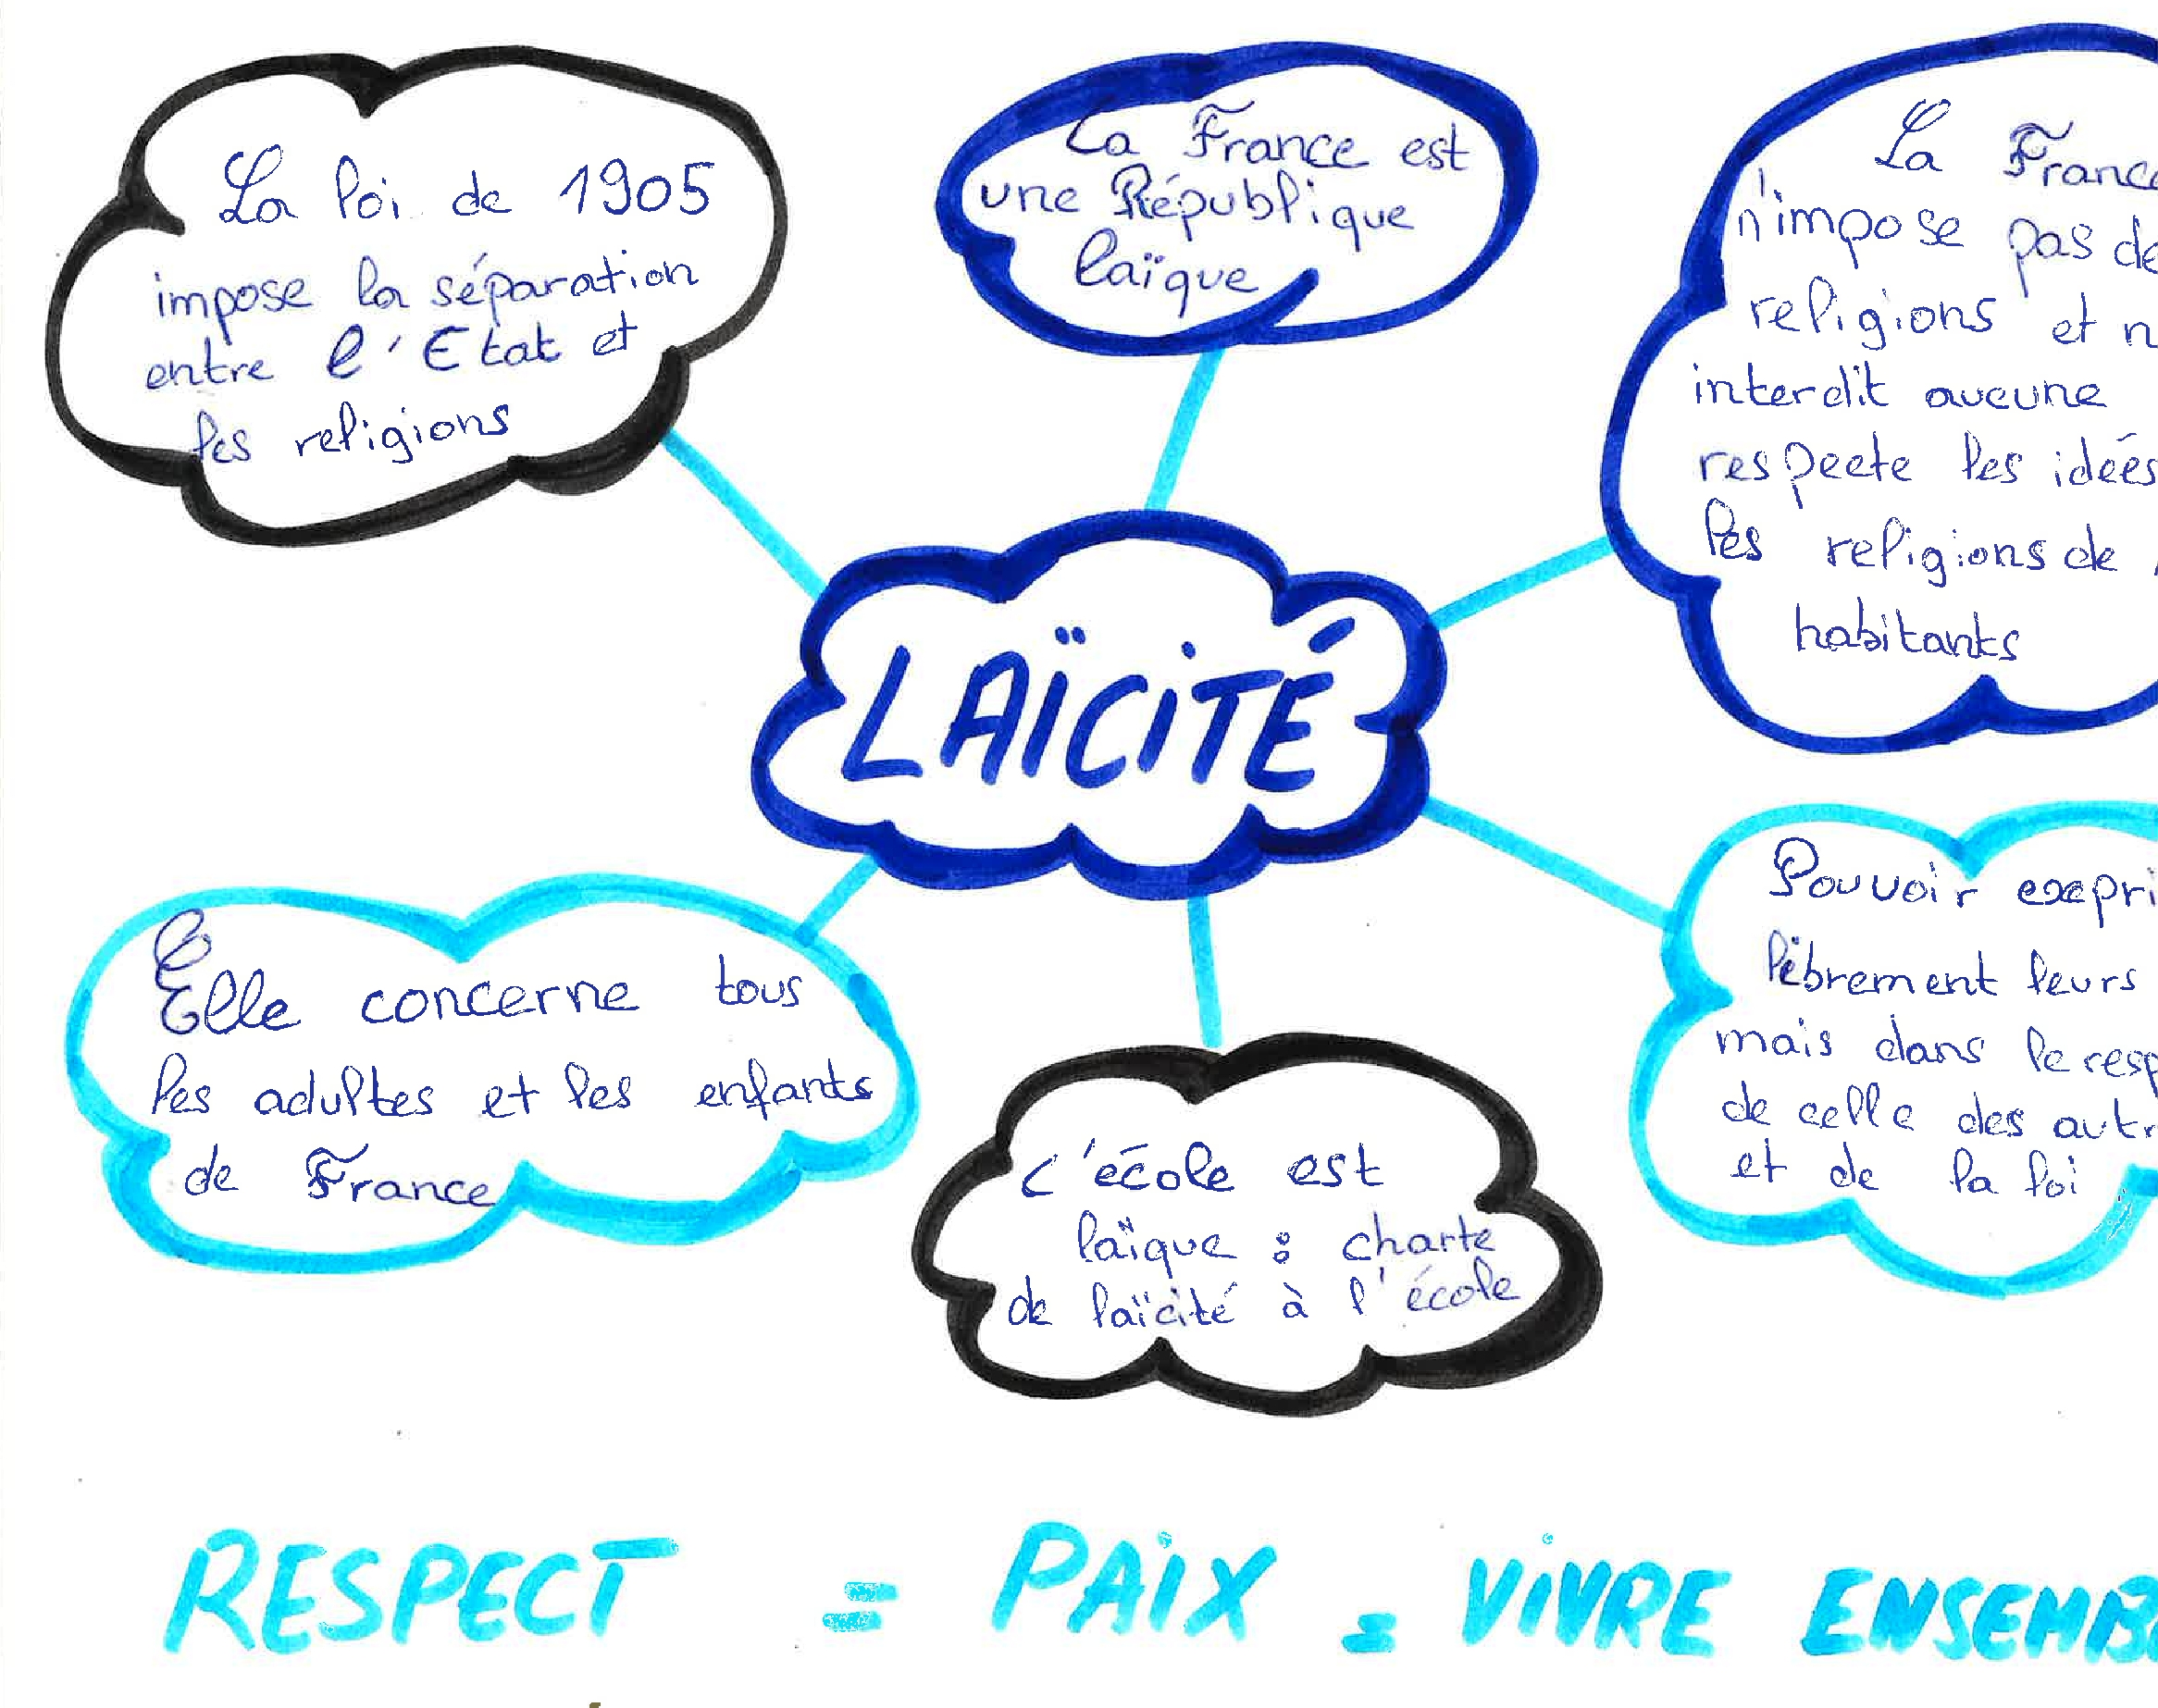 La loi de 1905
impose la séparation
entre l'Etat et
les religions
La France est
une République
laïque
La France
n'impose pas de
religions et n
interdit aucune
respecte les idées
les religions de
habitants
LAÏCITÉ
Elle concerne tous
les adultes et les enfants
de France
L'école est
laïque : charte
de laïcité à l'école
Pouvoir expri
librement leurs
mais dans le resp
de celle des autr
et de la loi
RESPECT = PAIX = VIVRE ENSEMB